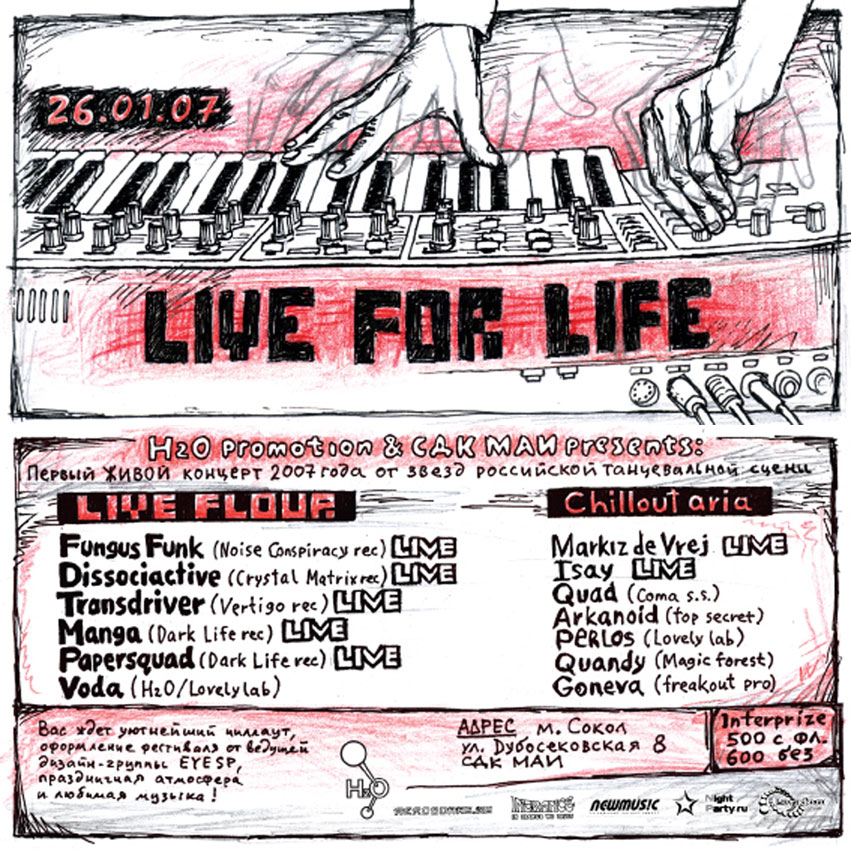 26.01.07
LIVE FOR LIFE
H2O promotion & СДК МАИ presents:
Первый живой концерт 2007 года от звезд российской танцевальной сцены
LIVE FLOUR
Chillout aria
Fungus Funk (Noise Conspiracy rec) LIVE
Dissociactive (Crystal Matrix rec) LIVE
Transdriver (Vertigo rec) LIVE
Manga (Dark Life rec) LIVE
Papersquad (Dark Life rec) LIVE
Voda (H2O/Lovely lab)
Markiz de Vrej LIVE
Isay LIVE
Quad (Coma s.s.)
Arkanoid (top secret)
Perlos (Lovely lab)
Quandy (Magic forest)
Goneva (freakout pro)
Вас ждет уютнейший чиллаут,
оформление фестиваля от ведущей
дизайн-группы EYESP,
праздничная атмосфера
и любимая музыка!
АДРЕС м. Сокол
ул. Дубосековская 8
СДК МАИ
Interprize
500 с фл.
600 без
H2O
INTRANCE
NEWMUSIC
Night
Party.ru